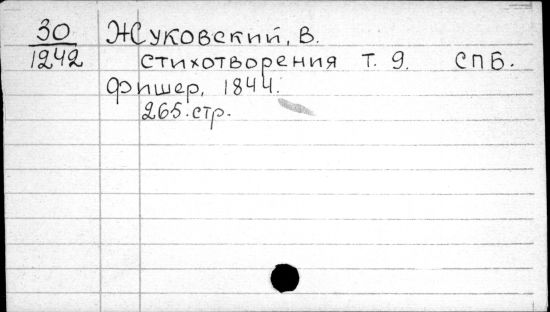 30 Жуковский, В.
1242 стихотворения т. 9. СПБ.
Фишер, 1844.
265.стр.